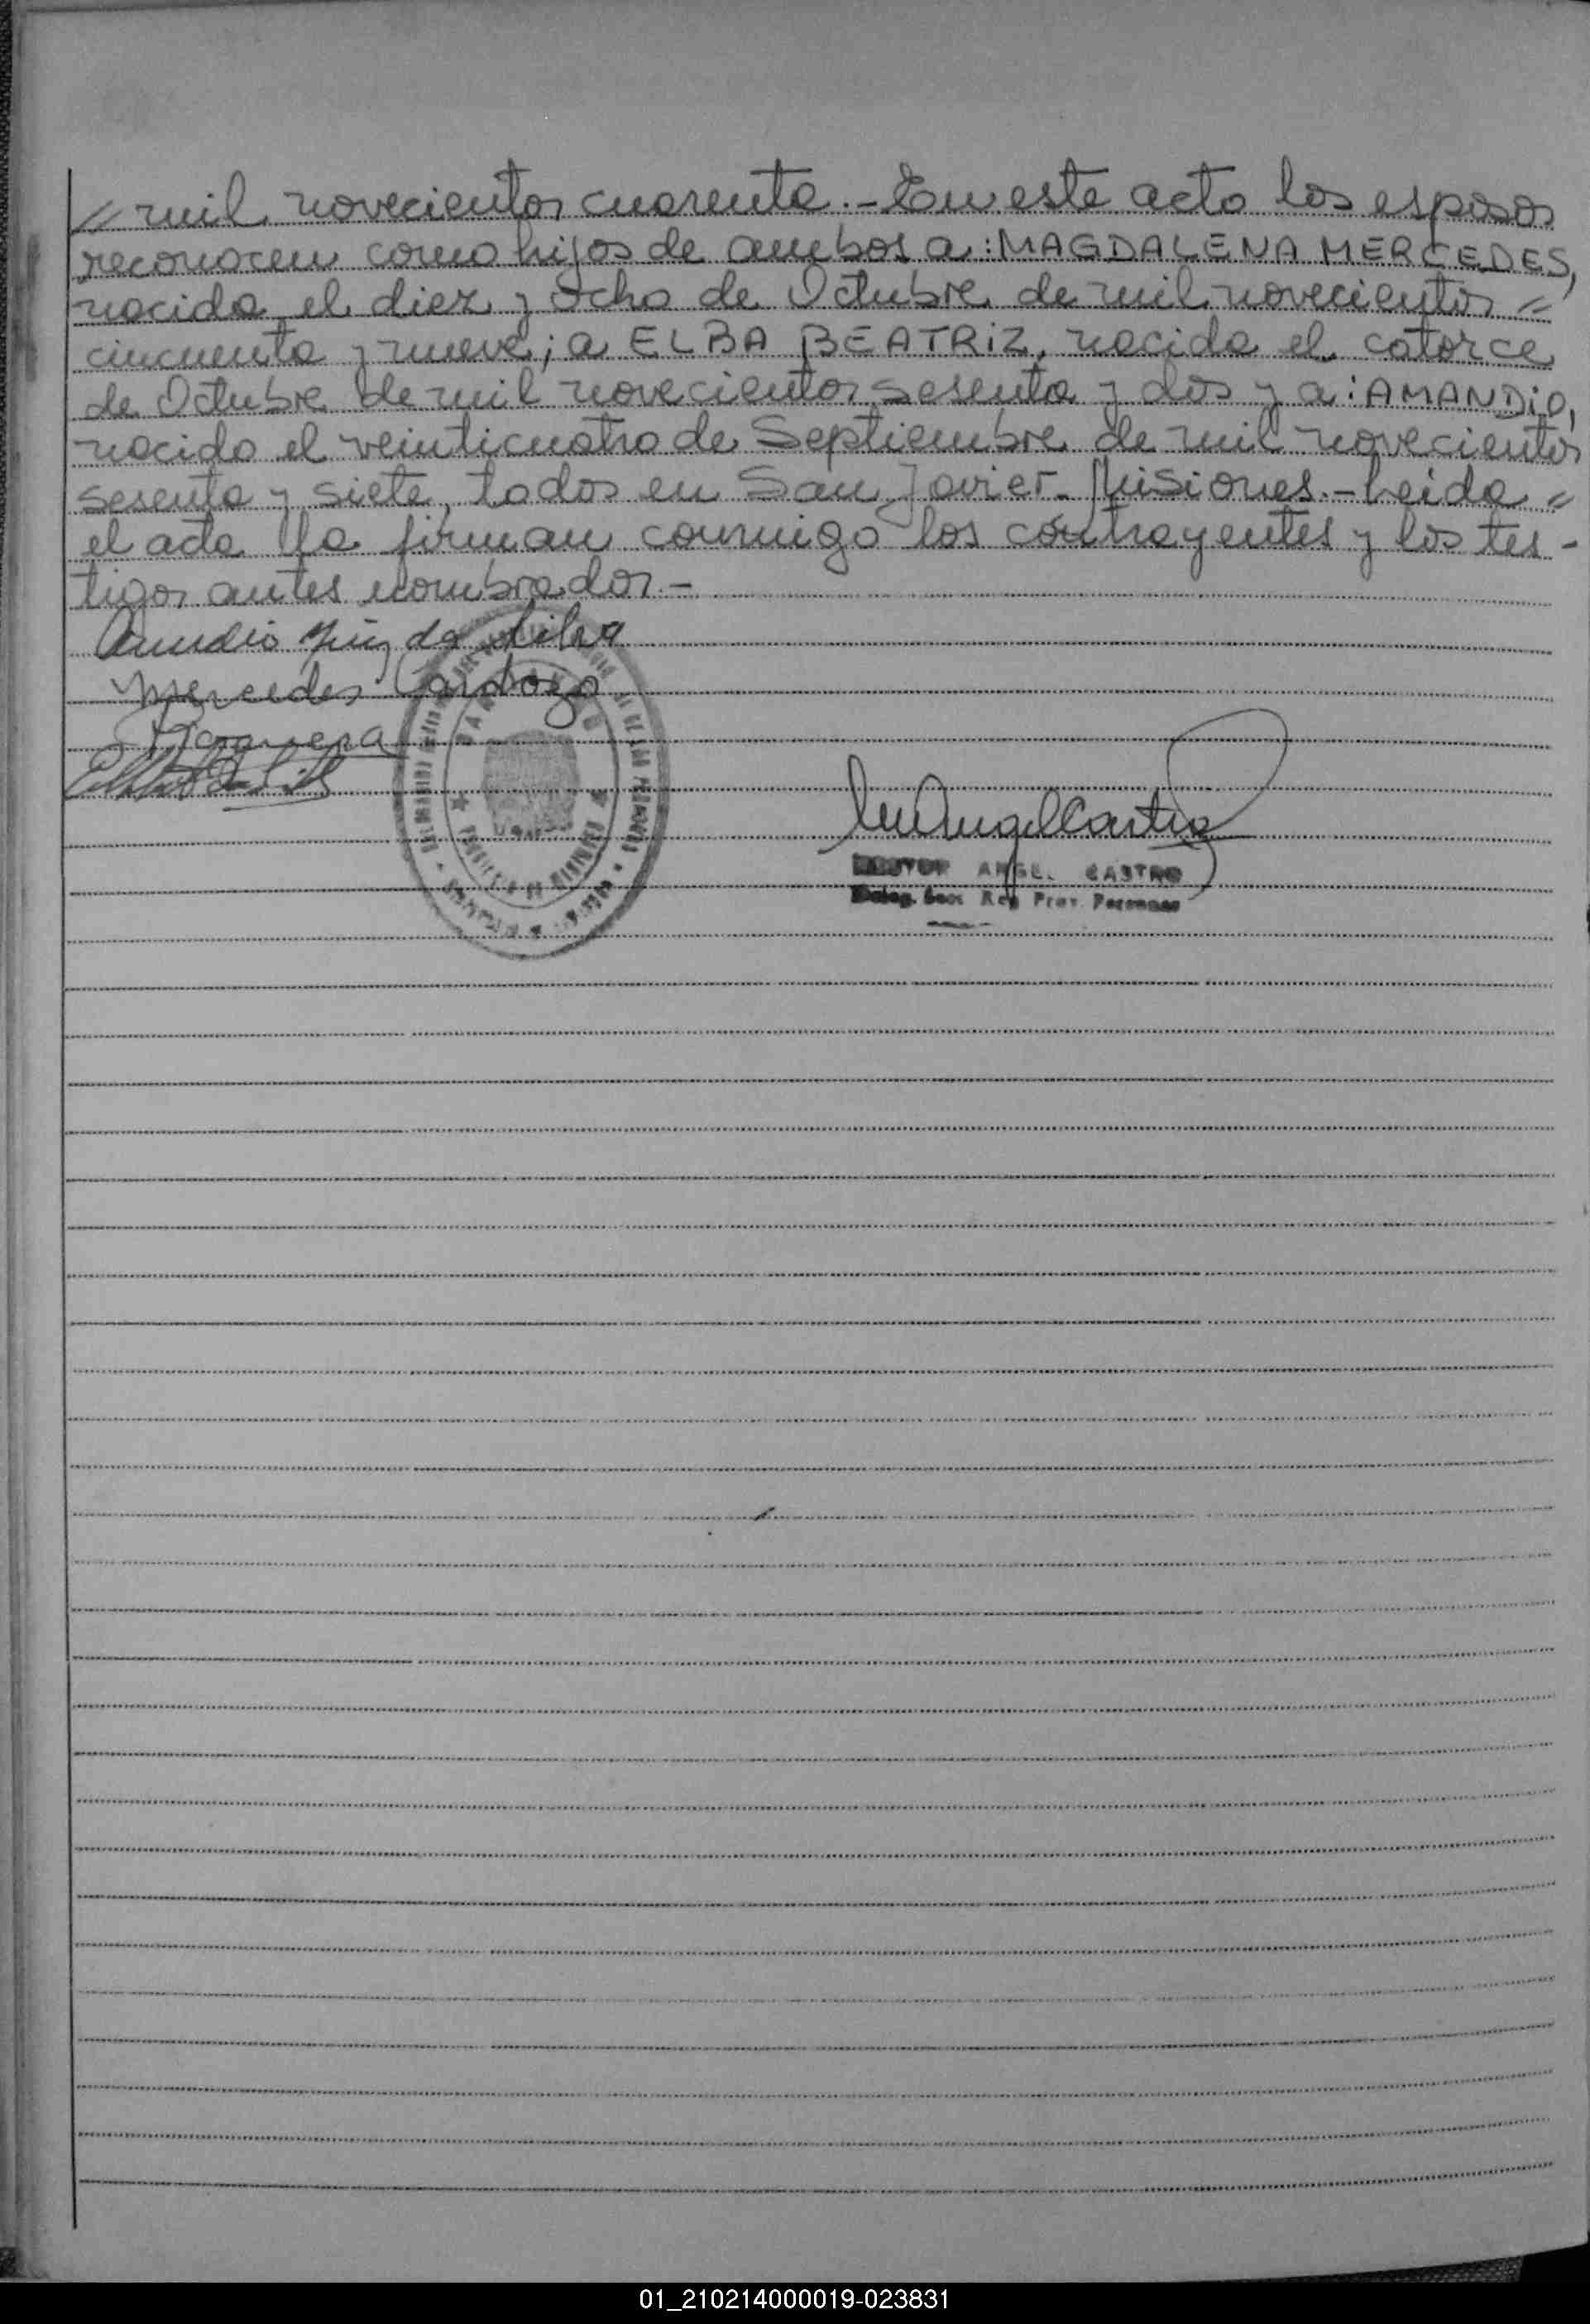 // mil novecientos cuarenta.- En este acto los esposos
reconocen como hijos de ambos a: MAGDALENA MERCEDES,
nacida el diez y ocho de Octubre de mil novecientos =
cincuenta y nueve; a ELBA BEATRiZ, nacida el catorce
de Octubre de mil novecientos sesenta y dos y a: AMANDiO,
nacido el veinticuatro de Septiembre de mil novecientos
sesenta y siete, todos en San Javier- Misiones.- Leida =
el acta la firman conmigo los contrayentes y los tes-
tigos antes nombrados.-
da Silva
Mercedes Cardozo
Angel Castro
ANGEL CASTRO
Deleg. Secc Reg Prov. Personas
01_210214000019-023831